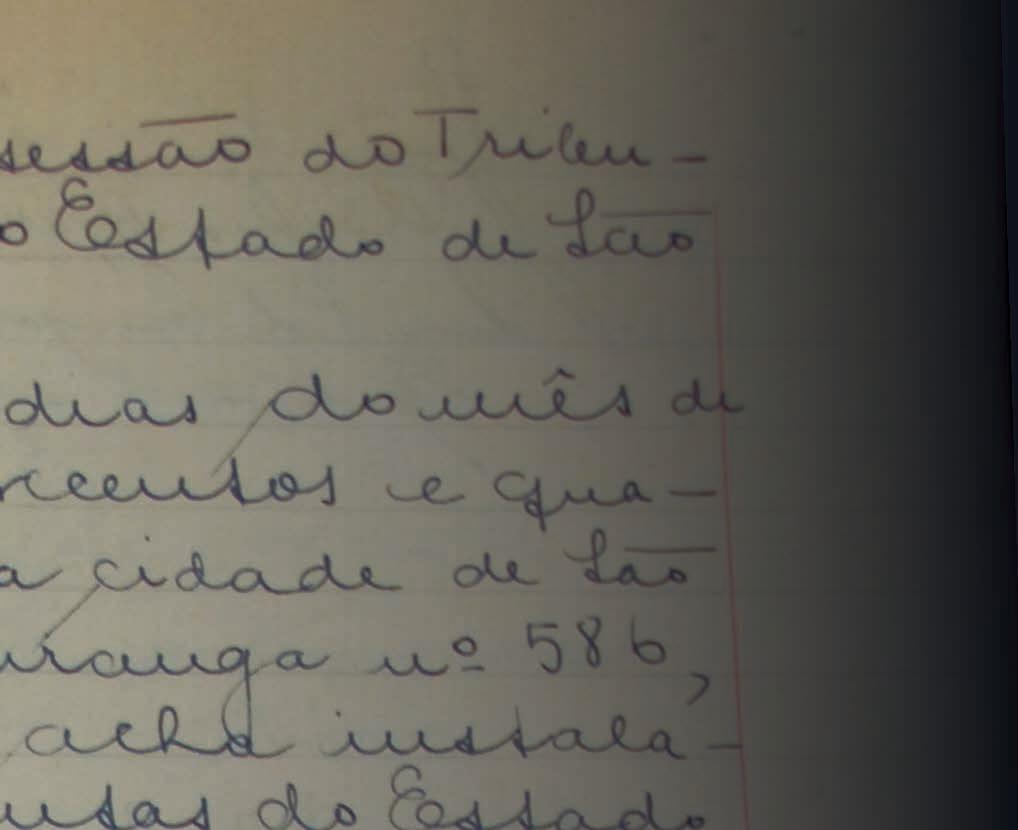 sessão do Tribu-
o Estado de São
dias do mês de
centos e qua-
a cidade de São
uranga nº 586,
acha instala-
ntas do Estado